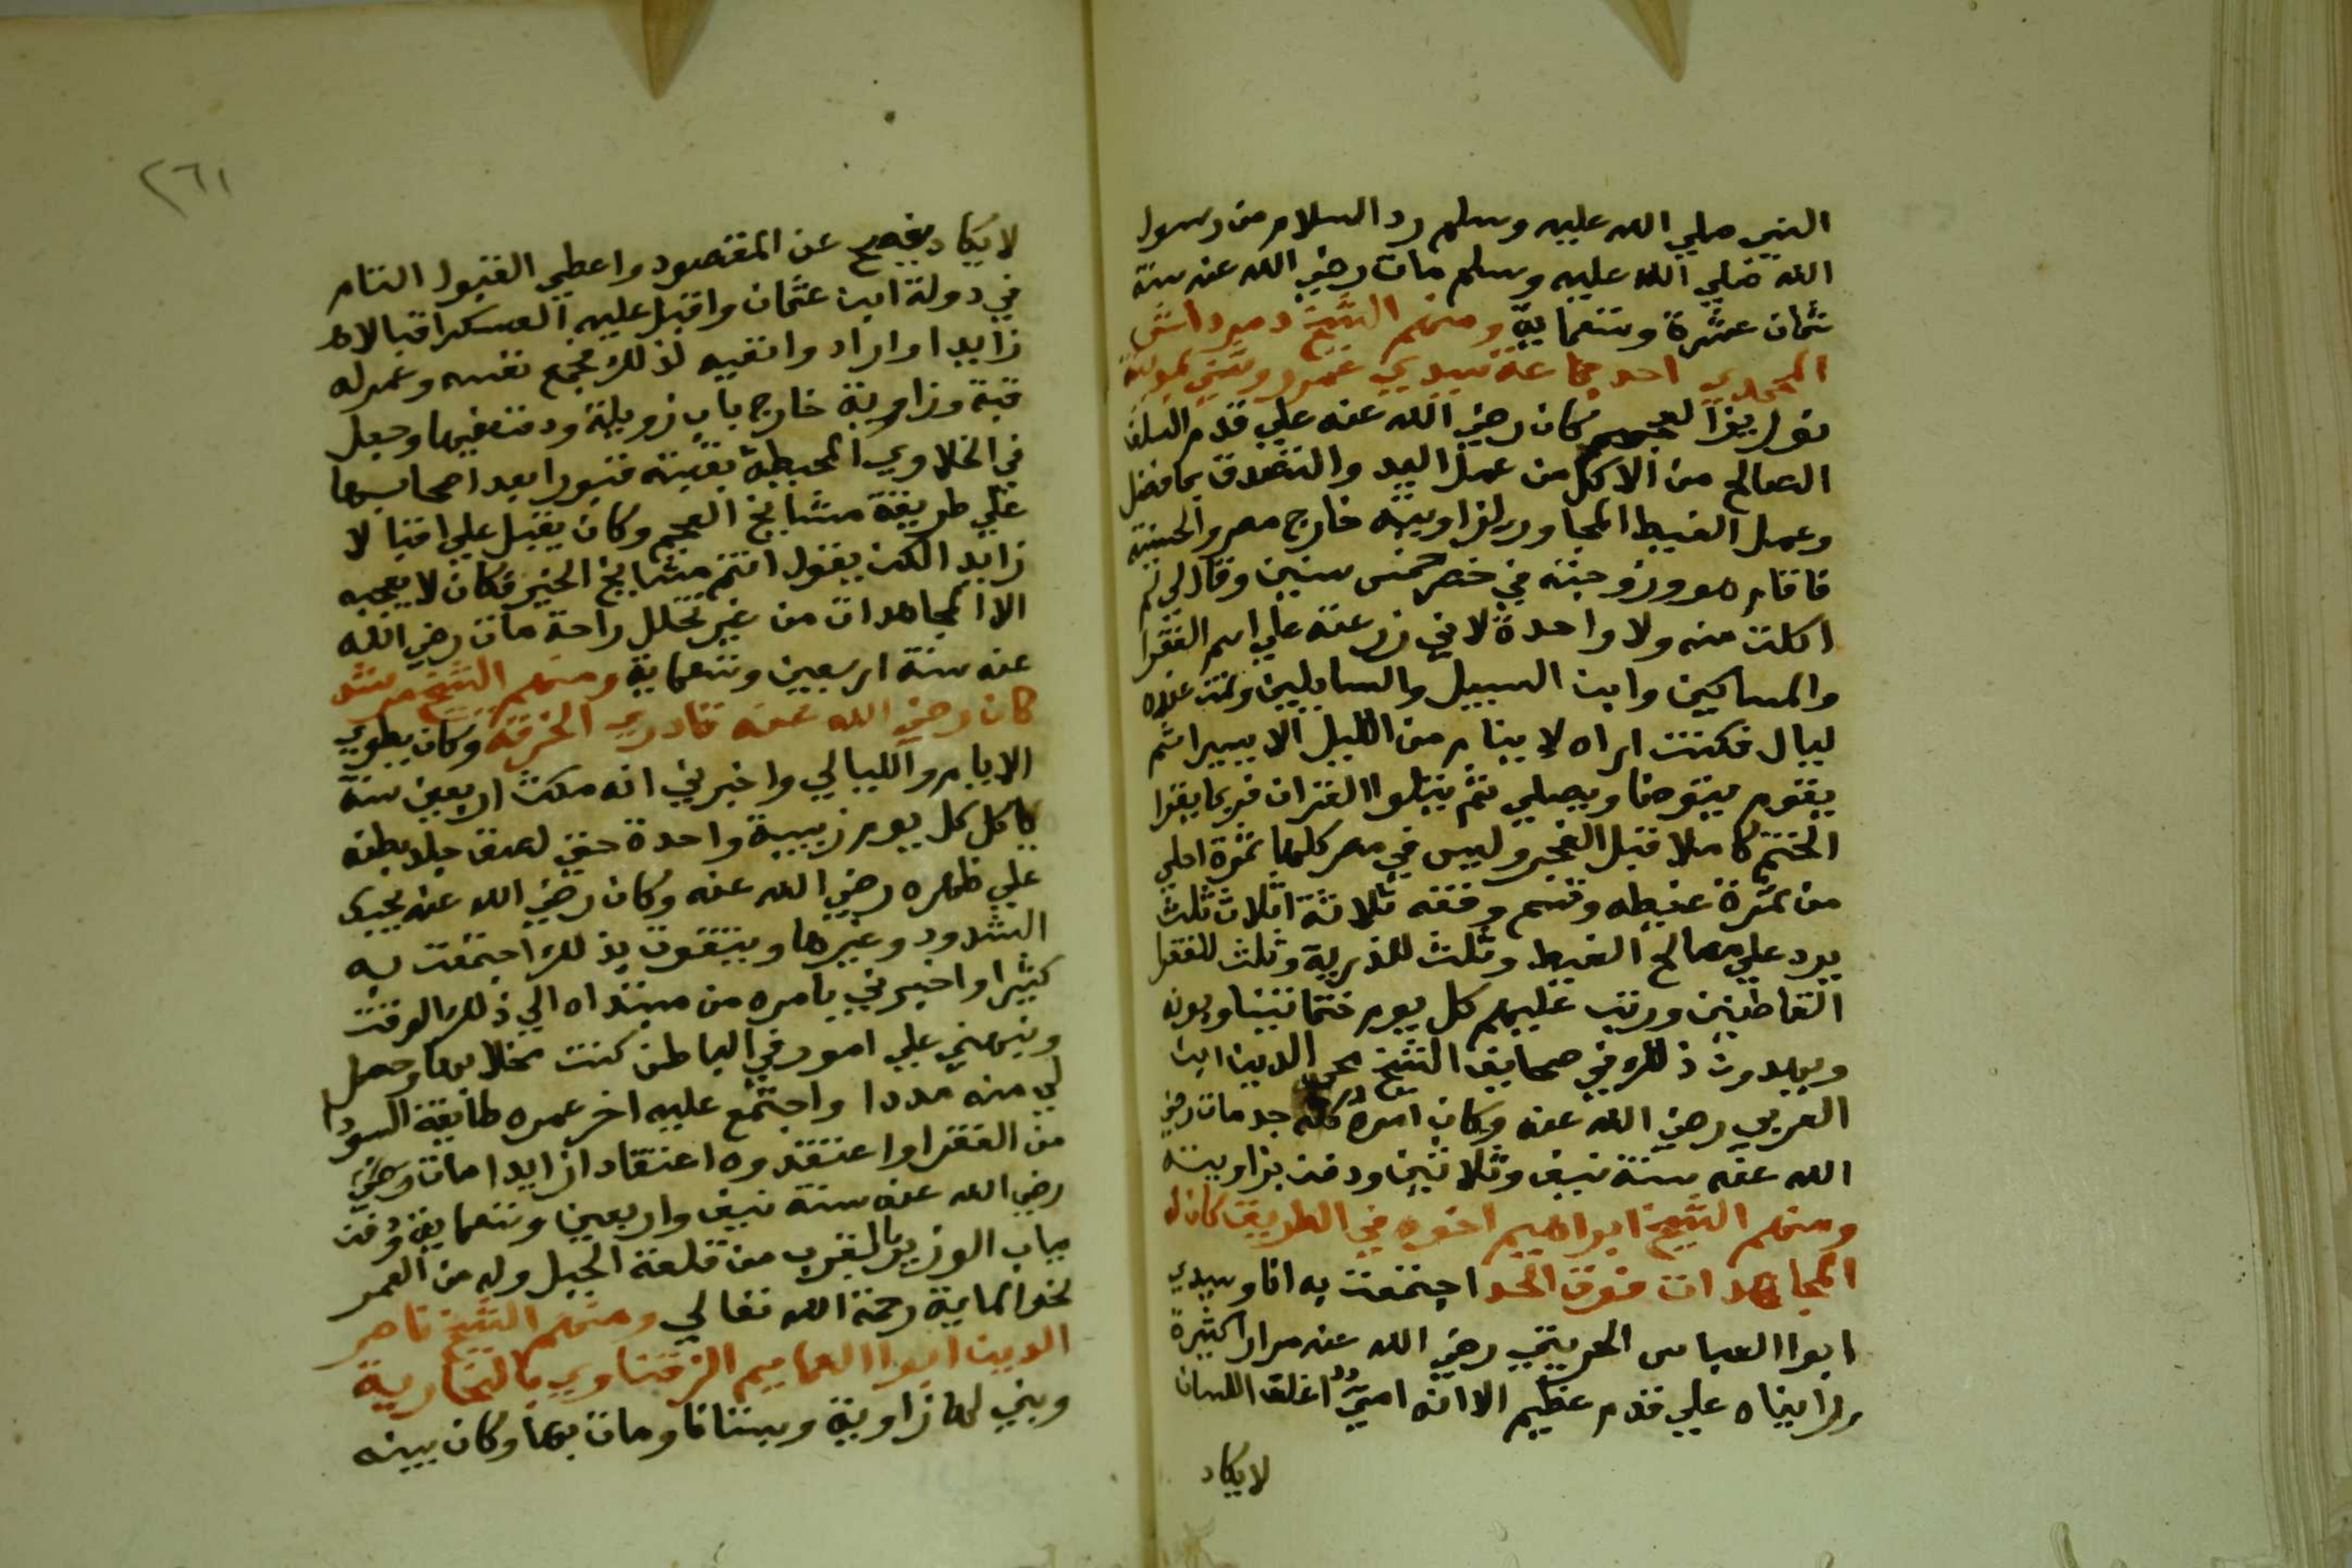 النبي صلي الله عليه وسلم رد السلام من رسول
الله صلي الله عليه وسلم مات رضي الله عنه سنة
ثمان عشرة وتسعماية ومنهم الشيخ دمرداش
المحمدي احد جماعة سيدي عمر روشني بمدينة
توريز العجم كان رضي الله عنه علي قدم السلف
الصالح من الاكل من عمل اليد والتصدق بما فضل
وعمل الغيط المجاور لزاويته خارج مصر والحسنية
فاقام هو وزوجته في خص خمس سنين وقال لي لم
اكلت منه ولا واحدة لاني زرعته علي اسم الفقرا
والمساكين وابن السبيل والسايلين ونمت عنده
ليال فكنت اراه لا ينام من الليل الا يسيرا ثم
يقوم يتوضا ويصلي ثم يتلوا القران فربما يقرا
الختم كاملا قبل الفجر وليس في مصر كلها ثمرة احلي
من ثمرة غيطه وقسم وقفه ثلاثة اثلاث ثلث
يرد علي مصالح الغيط وثلث للذرية وثلث للفقرا
القاطنين ورتب عليهم كل يوم ختما يتناوبونه
ويهدون ذلك في صحايف الشيخ محي الدين ابن
العربي رضي الله عنه وكان امره كله جد مات رضي
الله عنه سنة نيف وثلاثين ودفن بزاويته
ومنهم الشيخ ابراهيم اخوه في الطريق كان له
المجاهدات فوق الحد اجتمعت به انا وسيدي
ابوا العباس الحريثي رضي الله عنه مرارا كثيرة
ورايناه علي قدم عظيم الا انه امي اغلق اللسان
لايكاد
٢٦١
لايكاد يفصح عن المقصود واعطي القبول التام
في دولة ابن عثمان واقبل عليه العسكر اقبالا
زايدا واراد وانفيه لذلك فجمع نفسه وعمر له
قبة وزاوية خارج باب زويلة ودفن فيها وجعل
في الخلاوي المحيطة بقبته قبورا بعد اصحابها
علي طريقة مشايخ العجم وكان يقبل علي اقبالا
زايد الكن يقول انتم مشايخ الخير فكان لا يعجبه
الا المجاهدات من غير تخلل راحة مات رضي الله
عنه سنة اربعين وتسعماية ومنهم الشيخ مرشد
كان رضي الله عنه قادري الخرقة وكان يطوي
الايام والليالي واخبرني انه مكث اربعين سنة
ياكل كل يوم زبيبة واحدة حتي لصق جلد بطنه
علي ظهره رضي الله عنه وكان رضي الله عنه يحبك
الشدود وغيرها ويتقوت بذلك اجتمعت به
كثيرا واخبرني بامره من مبتداه الي ذلك الوقت
ونبهني علي امور في الباطن كنت مخلا بها وحصل
لي منه مددا واجتمع عليه اخر عمره طايفة السودا
من الفقرا واعتقدوه اعتقادا زايدا مات رضي
رضي الله عنه سنة نيف واربعين وتسعماية ودفن
بباب الوزير بالقرب من قلعة الجبل وله من العمر
نحو الماية رحمة الله تعالي ومنهم الشيخ ناصر
الدين ابوا العمايم الزفتاوي بالنحارية
وبني لها زاوية وبستانا ومات بها وكان بينه